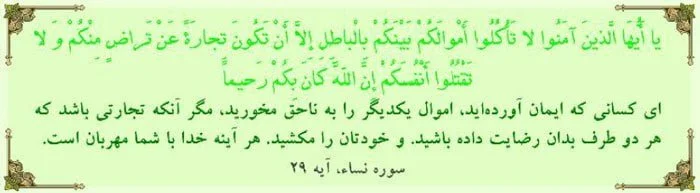 يا أَيُّهَا الَّذينَ آمَنُوا لا تَأْكُلُوا أَمْوالَكُمْ بَيْنَكُمْ بِالْباطِلِ إِلاَّ أَنْ تَكُونَ تِجارَةً عَنْ تَراضٍ مِنْكُمْ وَ لا
تَقْتُلُوا أَنْفُسَكُمْ إِنَّ اللَّهَ كانَ بِكُمْ رَحيماً
ای کسانی که ایمان آورده‌اید، اموال یکدیگر را به ناحق مخورید، مگر آنکه تجارتی باشد که
هر دو طرف بدان رضایت داده باشید. و خودتان را مکشید. هر آینه خدا با شما مهربان است.
سوره نساء، آیه ۲۹